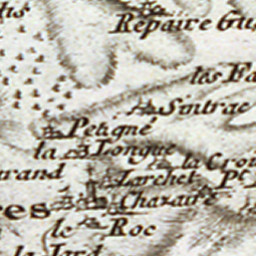 Repaire Gu
las Fa
Sintrac
Petigne
la Longue
la Croi
urand
Larchet Pc
Chazair
es
le Roc
la Jard